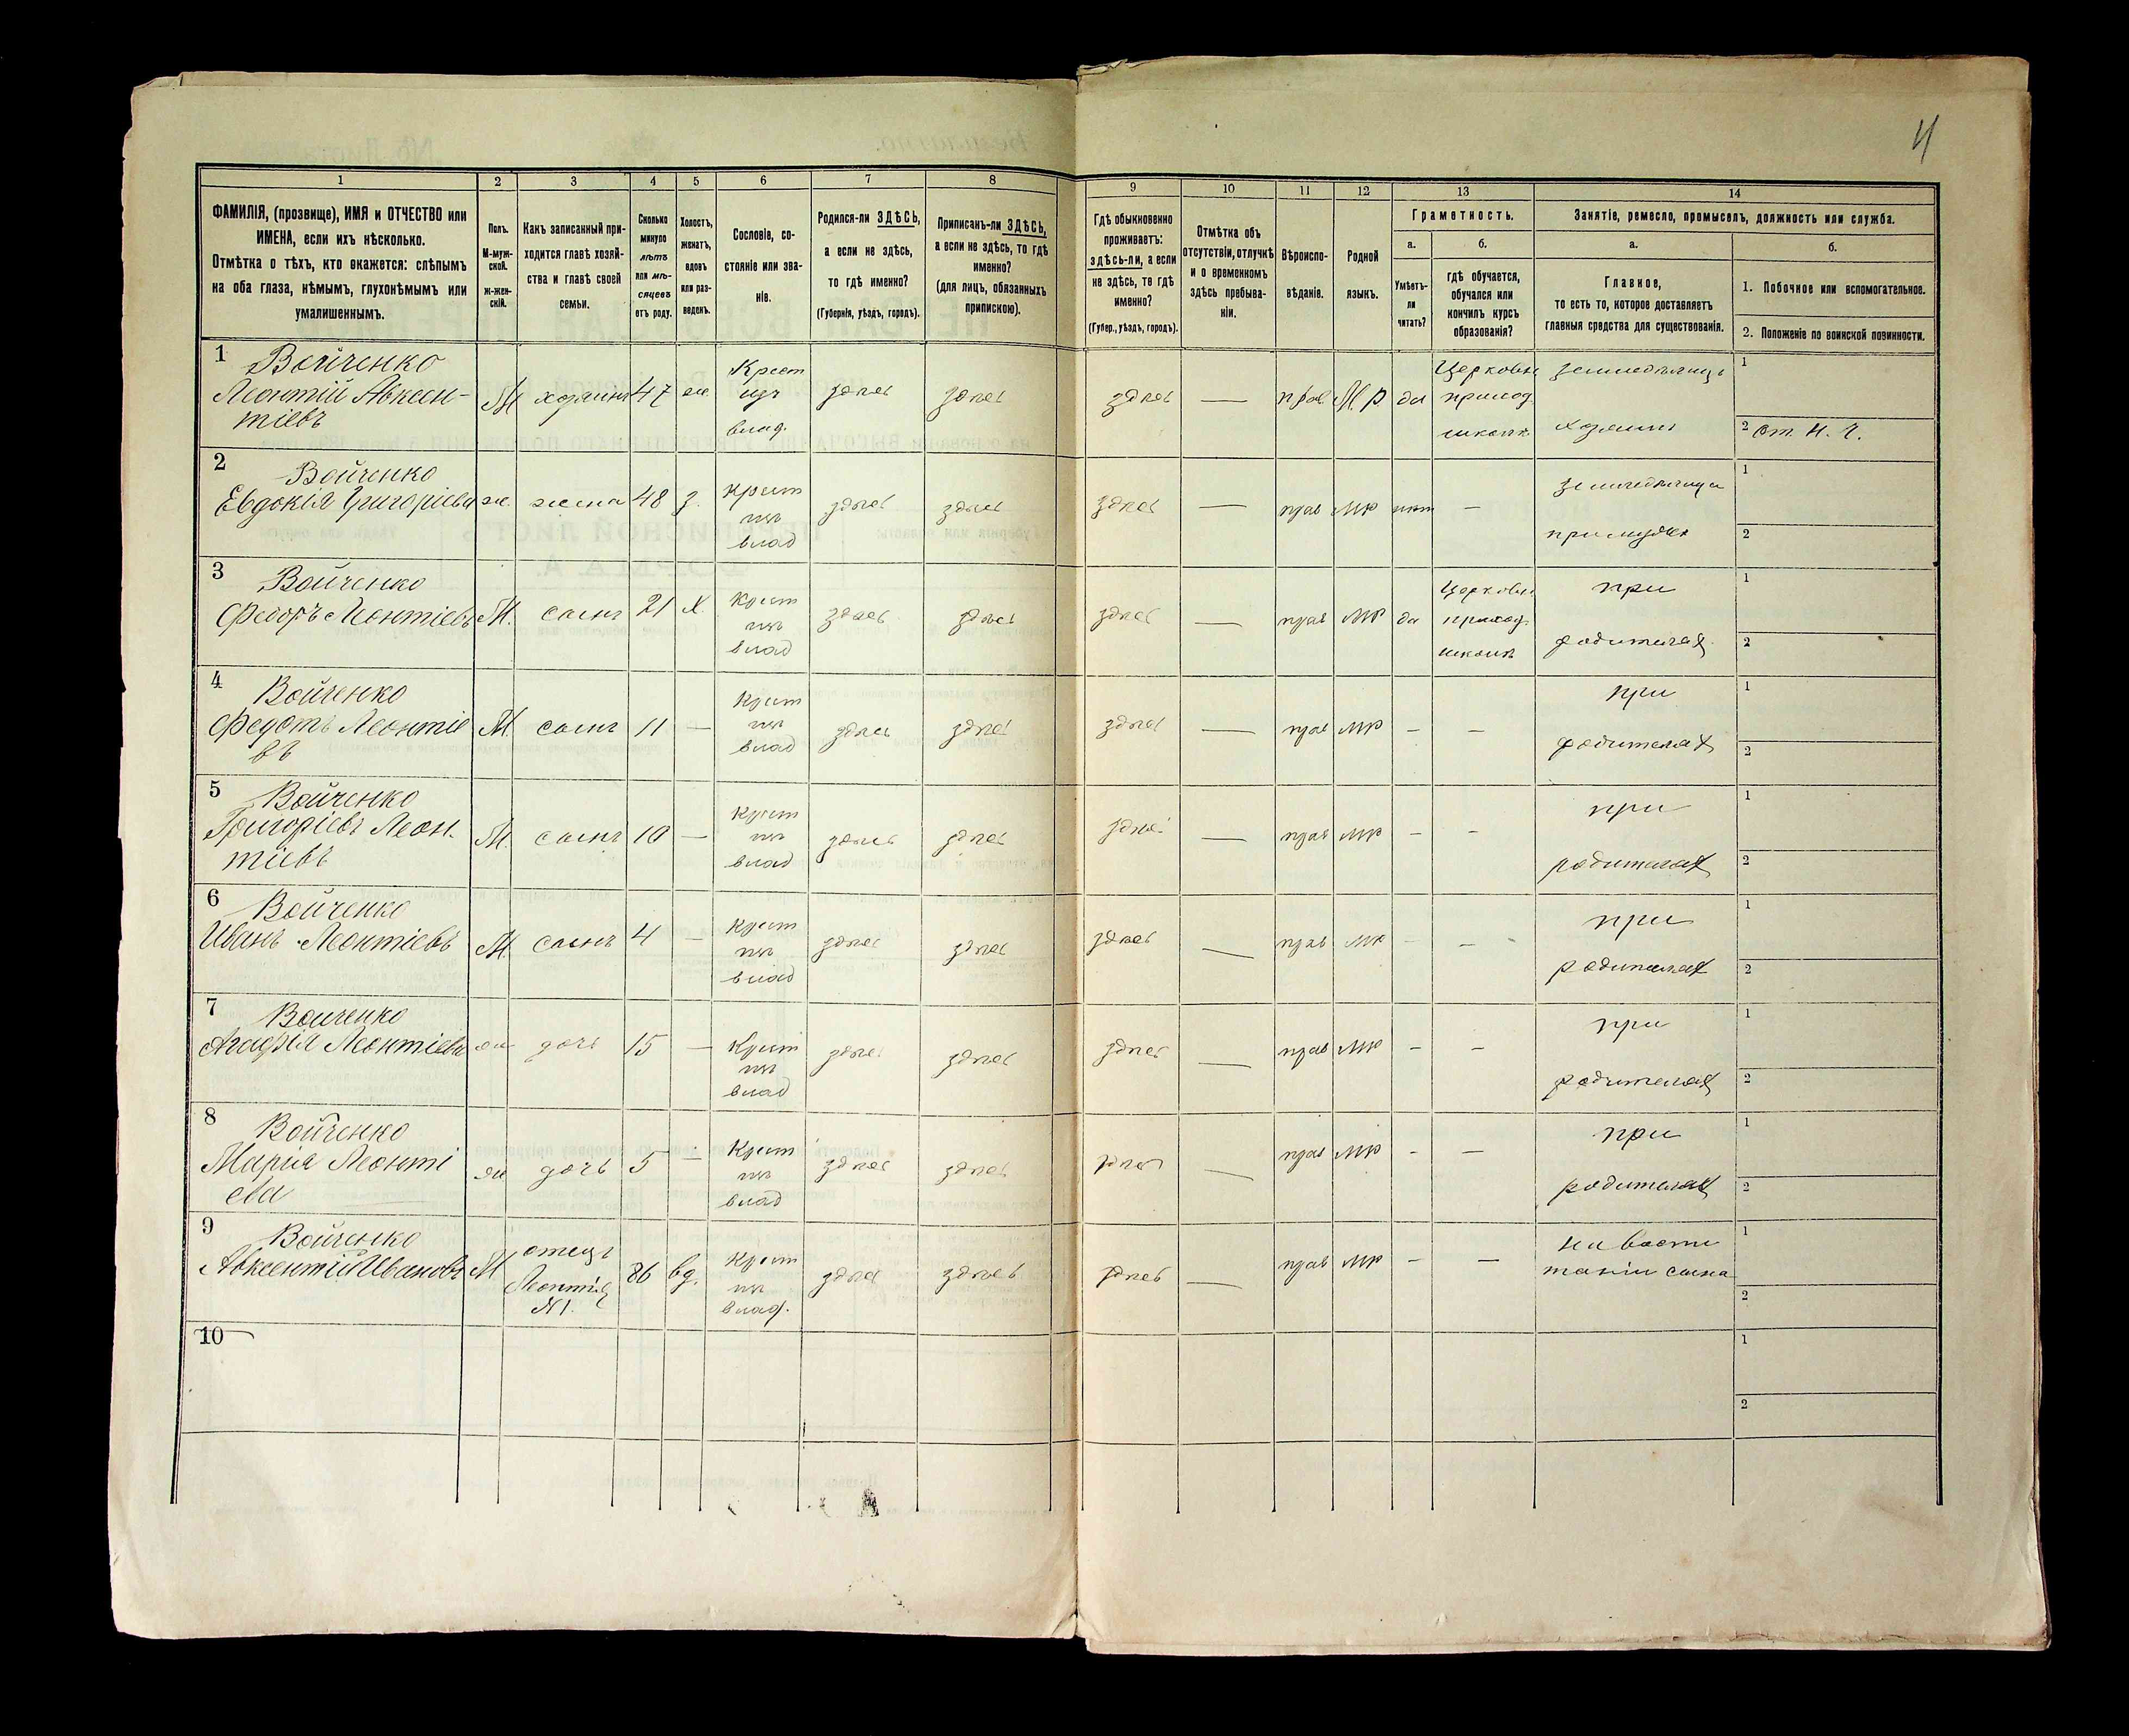 4
1 2 3 4 5 6 7 8 9 10 11 12 13 14
ФАМИЛІЯ, (прозвище), ИМЯ и ОТЧЕСТВО или
ИМЕНА, если ихъ нѣсколько.
Отмѣтка о тѣхъ, кто окажется: слѣпымъ
на оба глаза, нѣмымъ, глухонѣмымъ или
умалишеннымъ.
Полъ.
М-муж-
ской.
ж-жен-
скій.
Какъ записанный при-
ходится главѣ хозяй-
ства и главѣ своей
семьи.
Сколько
минуло
лѣтъ
или мѣ-
сяцевъ
отъ роду.
Холостъ,
женатъ,
вдовъ
или раз-
веденъ.
Сословіе, со-
стояніе или зва-
ніе.
Родился-ли ЗДѢСЬ,
а если не здѣсь,
то гдѣ именно?
(Губернія, уѣздъ, городъ).
Приписанъ-ли ЗДѢСЬ,
а если не здѣсь, то гдѣ
именно?
(для лицъ, обязанныхъ
припискою).
Гдѣ обыкновенно
проживаетъ:
здѣсь-ли, а если
не здѣсь, то гдѣ
именно?
(Губер., уѣздъ, городъ).
Отмѣтка объ
отсутствіи, отлучкѣ
и о временномъ
здѣсь пребыва-
ніи.
Вѣроиспо-
вѣданіе.
Родной
языкъ.
Грамотность.
а.
Умѣетъ-
ли
читать?
б.
гдѣ обучается,
обучался или
кончилъ курсъ
образованія?
Занятіе, ремесло, промыселъ, должность или служба.
а.
Главное,
то есть то, которое доставляетъ
главныя средства для существованія.
б.
1. Побочное или вспомогательное.
2. Положеніе по воинской повинности.
1 Войченко
Леонтій Авксен-
тіевъ
М хозяинъ 47 ж
Крест
изъ
влад.
здѣсь здѣсь здѣсь — прав. М.Р. да
Церковн
приход.
школѣ
земледѣлецъ
хозяинъ
1
2 от. н. ч.
2 Войченко
Евдокія Григоріева
ж. жена 48 з.
Крест
изъ
влад
здѣсь здѣсь здѣсь — прав МР нѣт —
земледѣлица
при мужѣ
1
2
3 Войченко
Федоръ Леонтіевъ
М. сынъ 21 х.
Крест
изъ
влад
здѣсь здѣсь здѣсь — прав МР да
Церковн.
приход.
школѣ
при
родителях
1
2
4 Войченко
Федотъ Леонтіе
въ
М. сынъ 11 —
Крест
изъ
влад
здѣсь здѣсь здѣсь — прав МР — —
при
родителях
1
2
5 Войченко
Григоріевъ Леон-
тіевъ
М. сынъ 10 —
Крест
изъ
влад
здѣсь здѣсь здѣсь — прав МР — —
при
родителях
1
2
6 Войченко
Иванъ Леонтіевъ
М. сынъ 4 —
Крест
изъ
влад
здѣсь здѣсь здѣсь — прав МР — —
при
родителях
1
2
7 Войченко
Агафія Леонтіева
ж дочь 15 —
Крест
изъ
влад
здѣсь здѣсь здѣсь — прав МР — —
при
родителях
1
2
8 Войченко
Марія Леонті
ева
ж дочь 5 —
Крест
изъ
влад
здѣсь здѣсь здѣсь — прав МР — —
при
родителях
1
2
9 Войченко
Авксентій Ивановъ
М
отецъ
Леонтія
№1.
86 вд.
Крест
изъ
влад.
здѣсь здѣсь здѣсь — прав МР — —
на воспи
таніи сына
1
2
10
1
2